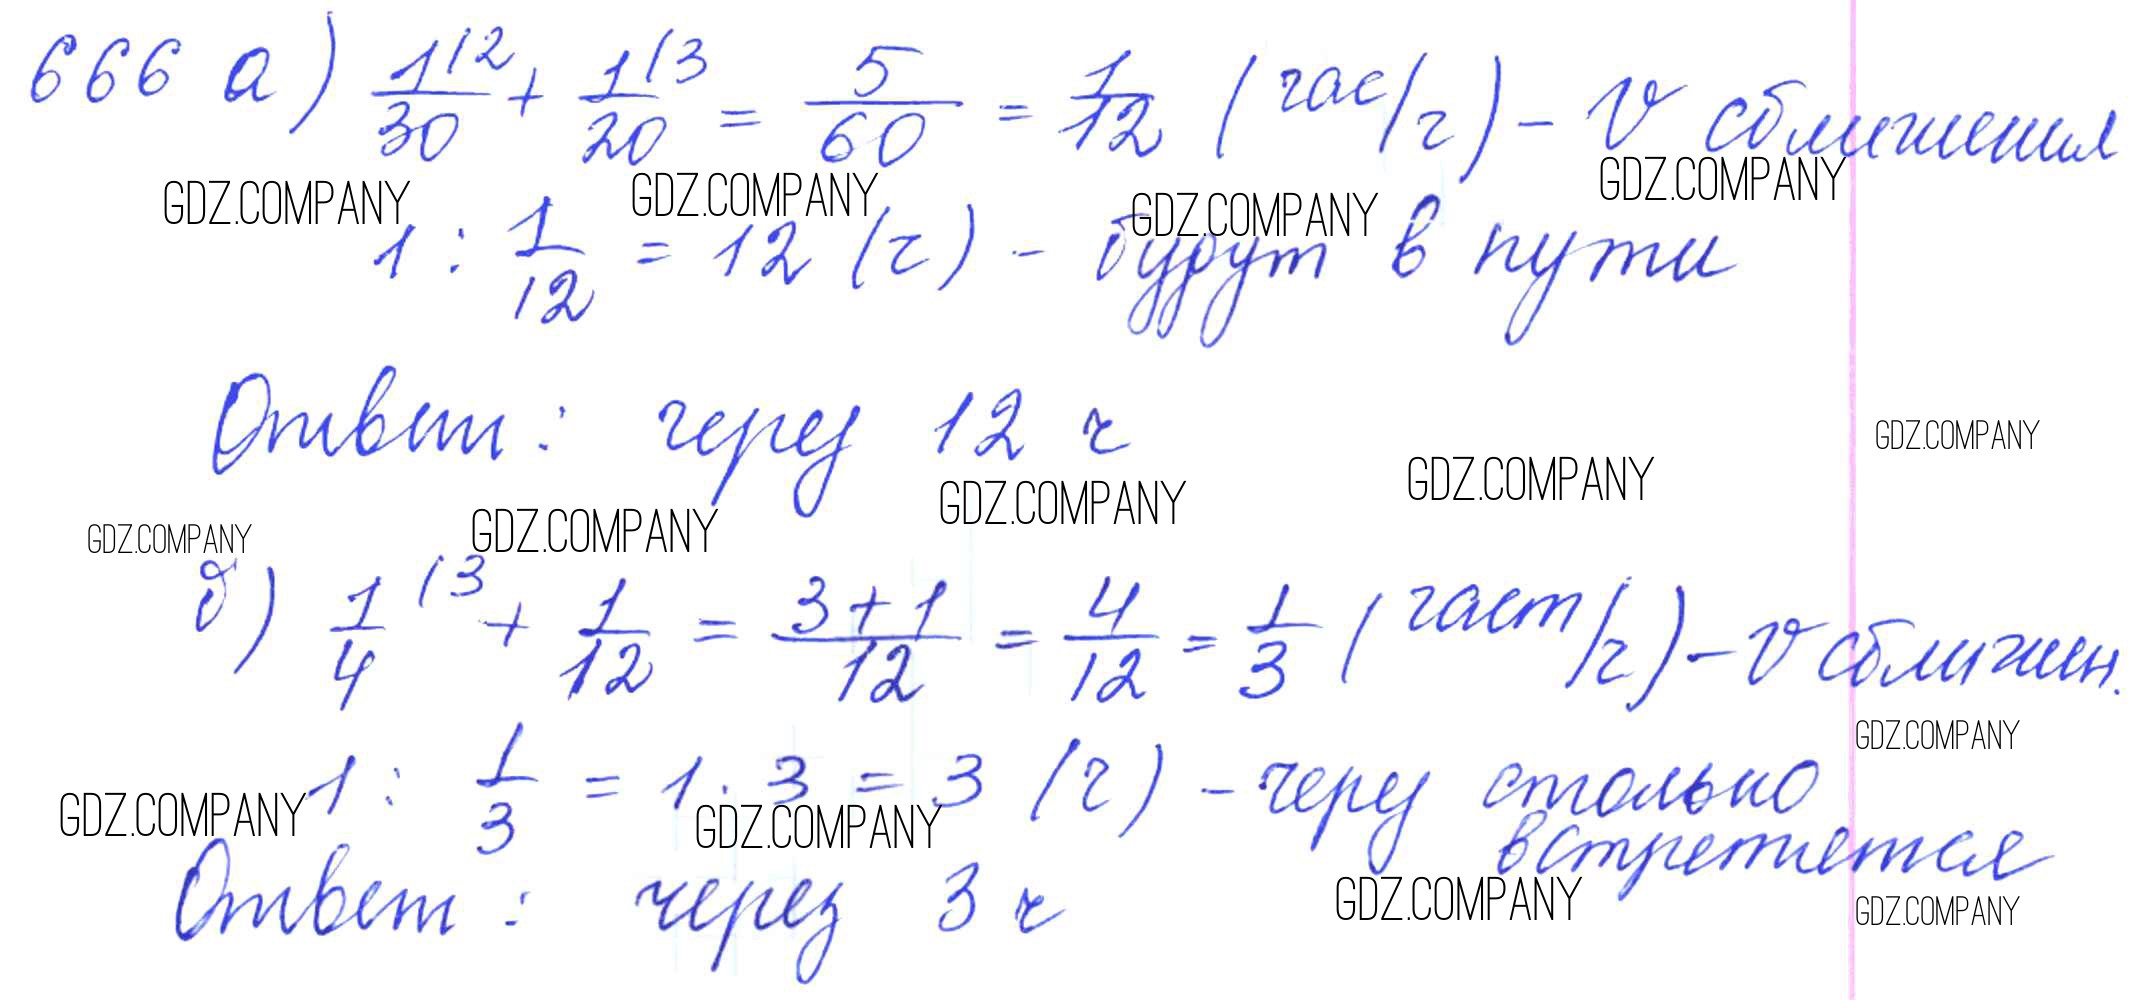 666 а) 1/30 |2 + 1/20 |3 = 5/60 = 1/12 (час/ч) - v сближения
GDZ.COMPANY GDZ.COMPANY GDZ.COMPANY GDZ.COMPANY
1 : 1/12 = 12 (ч) - будут в пути
Ответ: через 12 ч
GDZ.COMPANY
GDZ.COMPANY GDZ.COMPANY GDZ.COMPANY GDZ.COMPANY
б) 1/4 |3 + 1/12 = 3+1/12 = 4/12 = 1/3 (част/ч) - v сближен.
GDZ.COMPANY
1 : 1/3 = 1 · 3 = 3 (ч) - через столько
встретятся
GDZ.COMPANY GDZ.COMPANY
Ответ: через 3 ч
GDZ.COMPANY GDZ.COMPANY